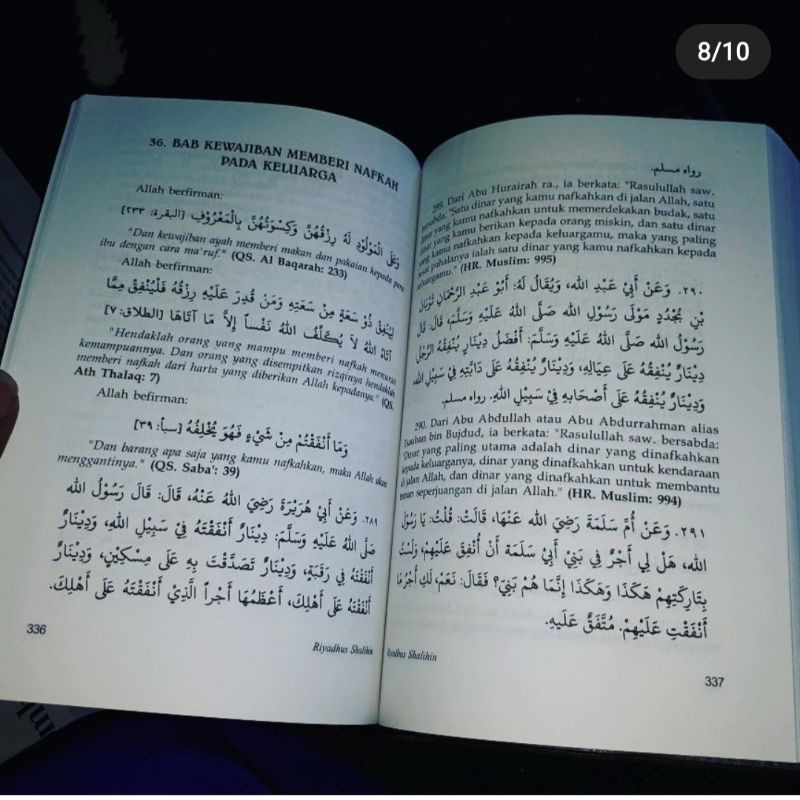 8/10
36. BAB KEWAJIBAN MEMBERI NAFKAH
PADA KELUARGA
Allah berfirman:
وَعَلَى الْمَوْلُودِ لَهُ رِزْقُهُنَّ وَكِسْوَتُهُنَّ بِالْمَعْرُوفِ [البقرة: ٢٣٣]
"Dan kewajiban ayah memberi makan dan pakaian kepada para
ibu dengan cara ma'ruf." (QS. Al Baqarah: 233)
Allah berfirman:
لِيُنْفِقْ ذُو سَعَةٍ مِنْ سَعَتِهِ وَمَنْ قُدِرَ عَلَيْهِ رِزْقُهُ فَلْيُنْفِقْ مِمَّا
آتَاهُ اللهُ لاَ يُكَلِّفُ اللهُ نَفْساً إِلاَّ مَا آتَاهَا [الطلاق: ٧]
"Hendaklah orang yang mampu memberi nafkah menurut
kemampuannya. Dan orang yang disempitkan rizqinya hendaklah
memberi nafkah dari harta yang diberikan Allah kepadanya." (QS.
Ath Thalaq: 7)
Allah befirman:
وَمَا أَنْفَقْتُمْ مِنْ شَيْءٍ فَهُوَ يُخْلِفُهُ [سبأ: ٣٩]
"Dan barang apa saja yang kamu nafkahkan, maka Allah akan
menggantinya." (QS. Saba': 39)
٢٨٩. وَعَنْ أَبِي هُرَيْرَةَ رَضِيَ اللهُ عَنْهُ، قَالَ: قَالَ رَسُوْلُ اللهِ
صَلَّى اللهُ عَلَيْهِ وَسَلَّمَ: دِينَارٌ أَنْفَقْتَهُ فِي سَبِيْلِ اللهِ، وَدِيْنَارٌ
أَنْفَقْتَهُ فِي رَقَبَةٍ، وَدِيْنَارٌ تَصَدَّقْتَ بِهِ عَلَى مِسْكِيْنٍ، وَدِيْنَارٌ
أَنْفَقْتَهُ عَلَى أَهْلِكَ، أَعْظَمُهَا أَجْراً الَّذِيْ أَنْفَقْتَهُ عَلَى أَهْلِكَ.
336
Riyadhus Shalihin
رواه مسلم.
289. Dari Abu Hurairah ra., ia berkata: "Rasulullah saw.
bersabda: 'Satu dinar yang kamu nafkahkan di jalan Allah, satu
dinar yang kamu nafkahkan untuk memerdekakan budak, satu
dinar yang kamu berikan kepada orang miskin, dan satu dinar
yang kamu nafkahkan kepada keluargamu, maka yang paling
besar pahalanya ialah satu dinar yang kamu nafkahkan kepada
keluargamu." (HR. Muslim: 995)
٢٩٠. وَعَنْ أَبِي عَبْدِ اللهِ، وَيُقَالُ لَهُ: أَبُوْ عَبْدِ الرَّحْمَانِ ثَوْبَانَ
بْنِ بُجْدُدٍ مَوْلَى رَسُوْلِ اللهِ صَلَّى اللهُ عَلَيْهِ وَسَلَّمَ، قَالَ: قَالَ
رَسُوْلُ اللهِ صَلَّى اللهُ عَلَيْهِ وَسَلَّمَ: أَفْضَلُ دِيْنَارٍ يُنْفِقُهُ الرَّجُلُ
دِيْنَارٌ يُنْفِقُهُ عَلَى عِيَالِهِ، وَدِيْنَارٌ يُنْفِقُهُ عَلَى دَابَّتِهِ فِيْ سَبِيْلِ اللهِ،
وَدِيْنَارٌ يُنْفِقُهُ عَلَى أَصْحَابِهِ فِيْ سَبِيْلِ اللهِ. رواه مسلم.
290. Dari Abu Abdullah atau Abu Abdurrahman alias
Tsauban bin Bujdud, ia berkata: "Rasulullah saw. bersabda:
'Dinar yang paling utama adalah dinar yang dinafkahkan
kepada keluarganya, dinar yang dinafkahkan untuk kendaraan
di jalan Allah, dan dinar yang dinafkahkan untuk membantu
teman seperjuangan di jalan Allah." (HR. Muslim: 994)
٢٩١. وَعَنْ أُمِّ سَلَمَةَ رَضِيَ اللهُ عَنْهَا، قَالَتْ: قُلْتُ: يَا رَسُوْلَ
اللهِ، هَلْ لِي أَجْرٌ فِيْ بَنِيْ أَبِيْ سَلَمَةَ أَنْ أُنْفِقَ عَلَيْهِمْ، وَلَسْتُ
بِتَارِكَتِهِمْ هَكَذَا وَهَكَذَا إِنَّمَا هُمْ بَنِيَّ؟ فَقَالَ: نَعَمْ، لَكِ أَجْرُ مَا
أَنْفَقْتِ عَلَيْهِمْ. مُتَّفَقٌ عَلَيْهِ.
Riyadhus Shalihin
337